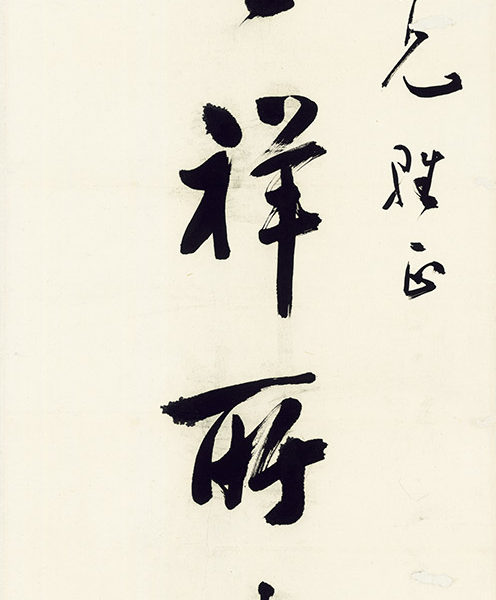 兄雅正
祥所